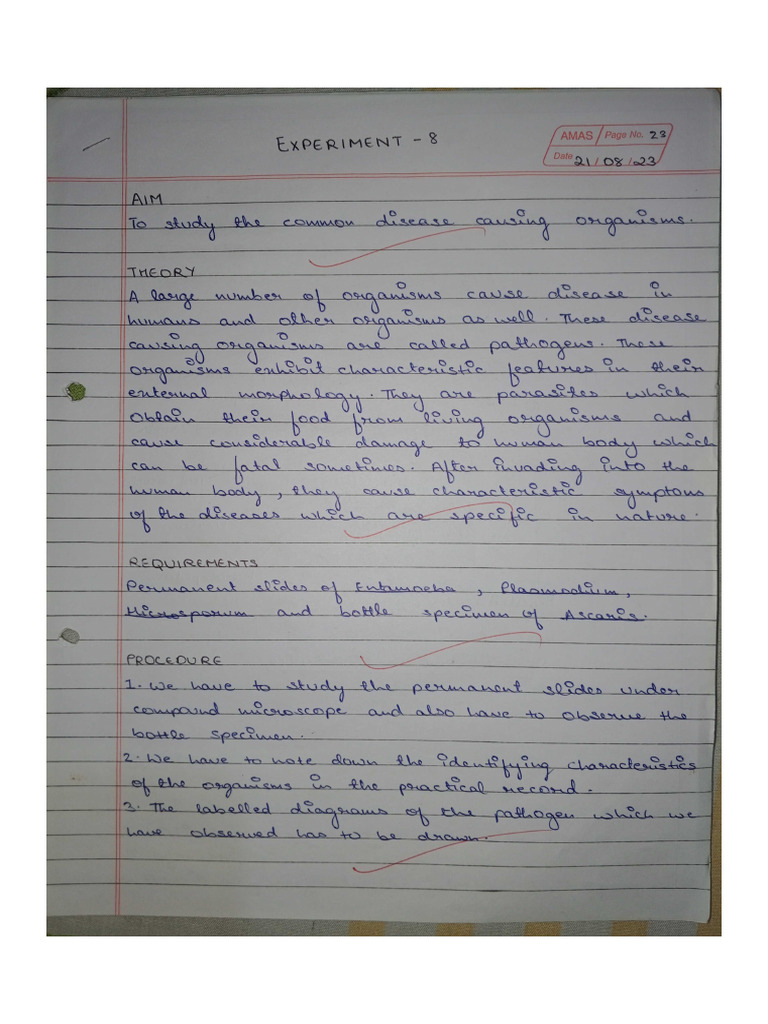 EXPERIMENT - 8
AMAS Page No. 23
Date 21/08/23
AIM
To study the common disease causing organisms.
THEORY
A large number of organisms cause disease in
humans and other organisms as well. These disease
causing organisms are called pathogens. These
organisms exhibit characteristic features in their
external morphology. They are parasites which
obtain their food from living organisms and
cause considerable damage to human body which
can be fatal sometimes. After invading into the
human body, they cause characteristic symptoms
of the diseases which are specific in nature.
REQUIREMENTS
Permanent slides of Entamoeba, Plasmodium,
Microsporum and bottle specimen of Ascaris.
PROCEDURE
1. We have to study the permanent slides under
compound microscope and also have to observe the
bottle specimen.
2. We have to note down the identifying characteristics
of the organisms in the practical record.
3. The labelled diagrams of the pathogen which we
have observed has to be drawn.